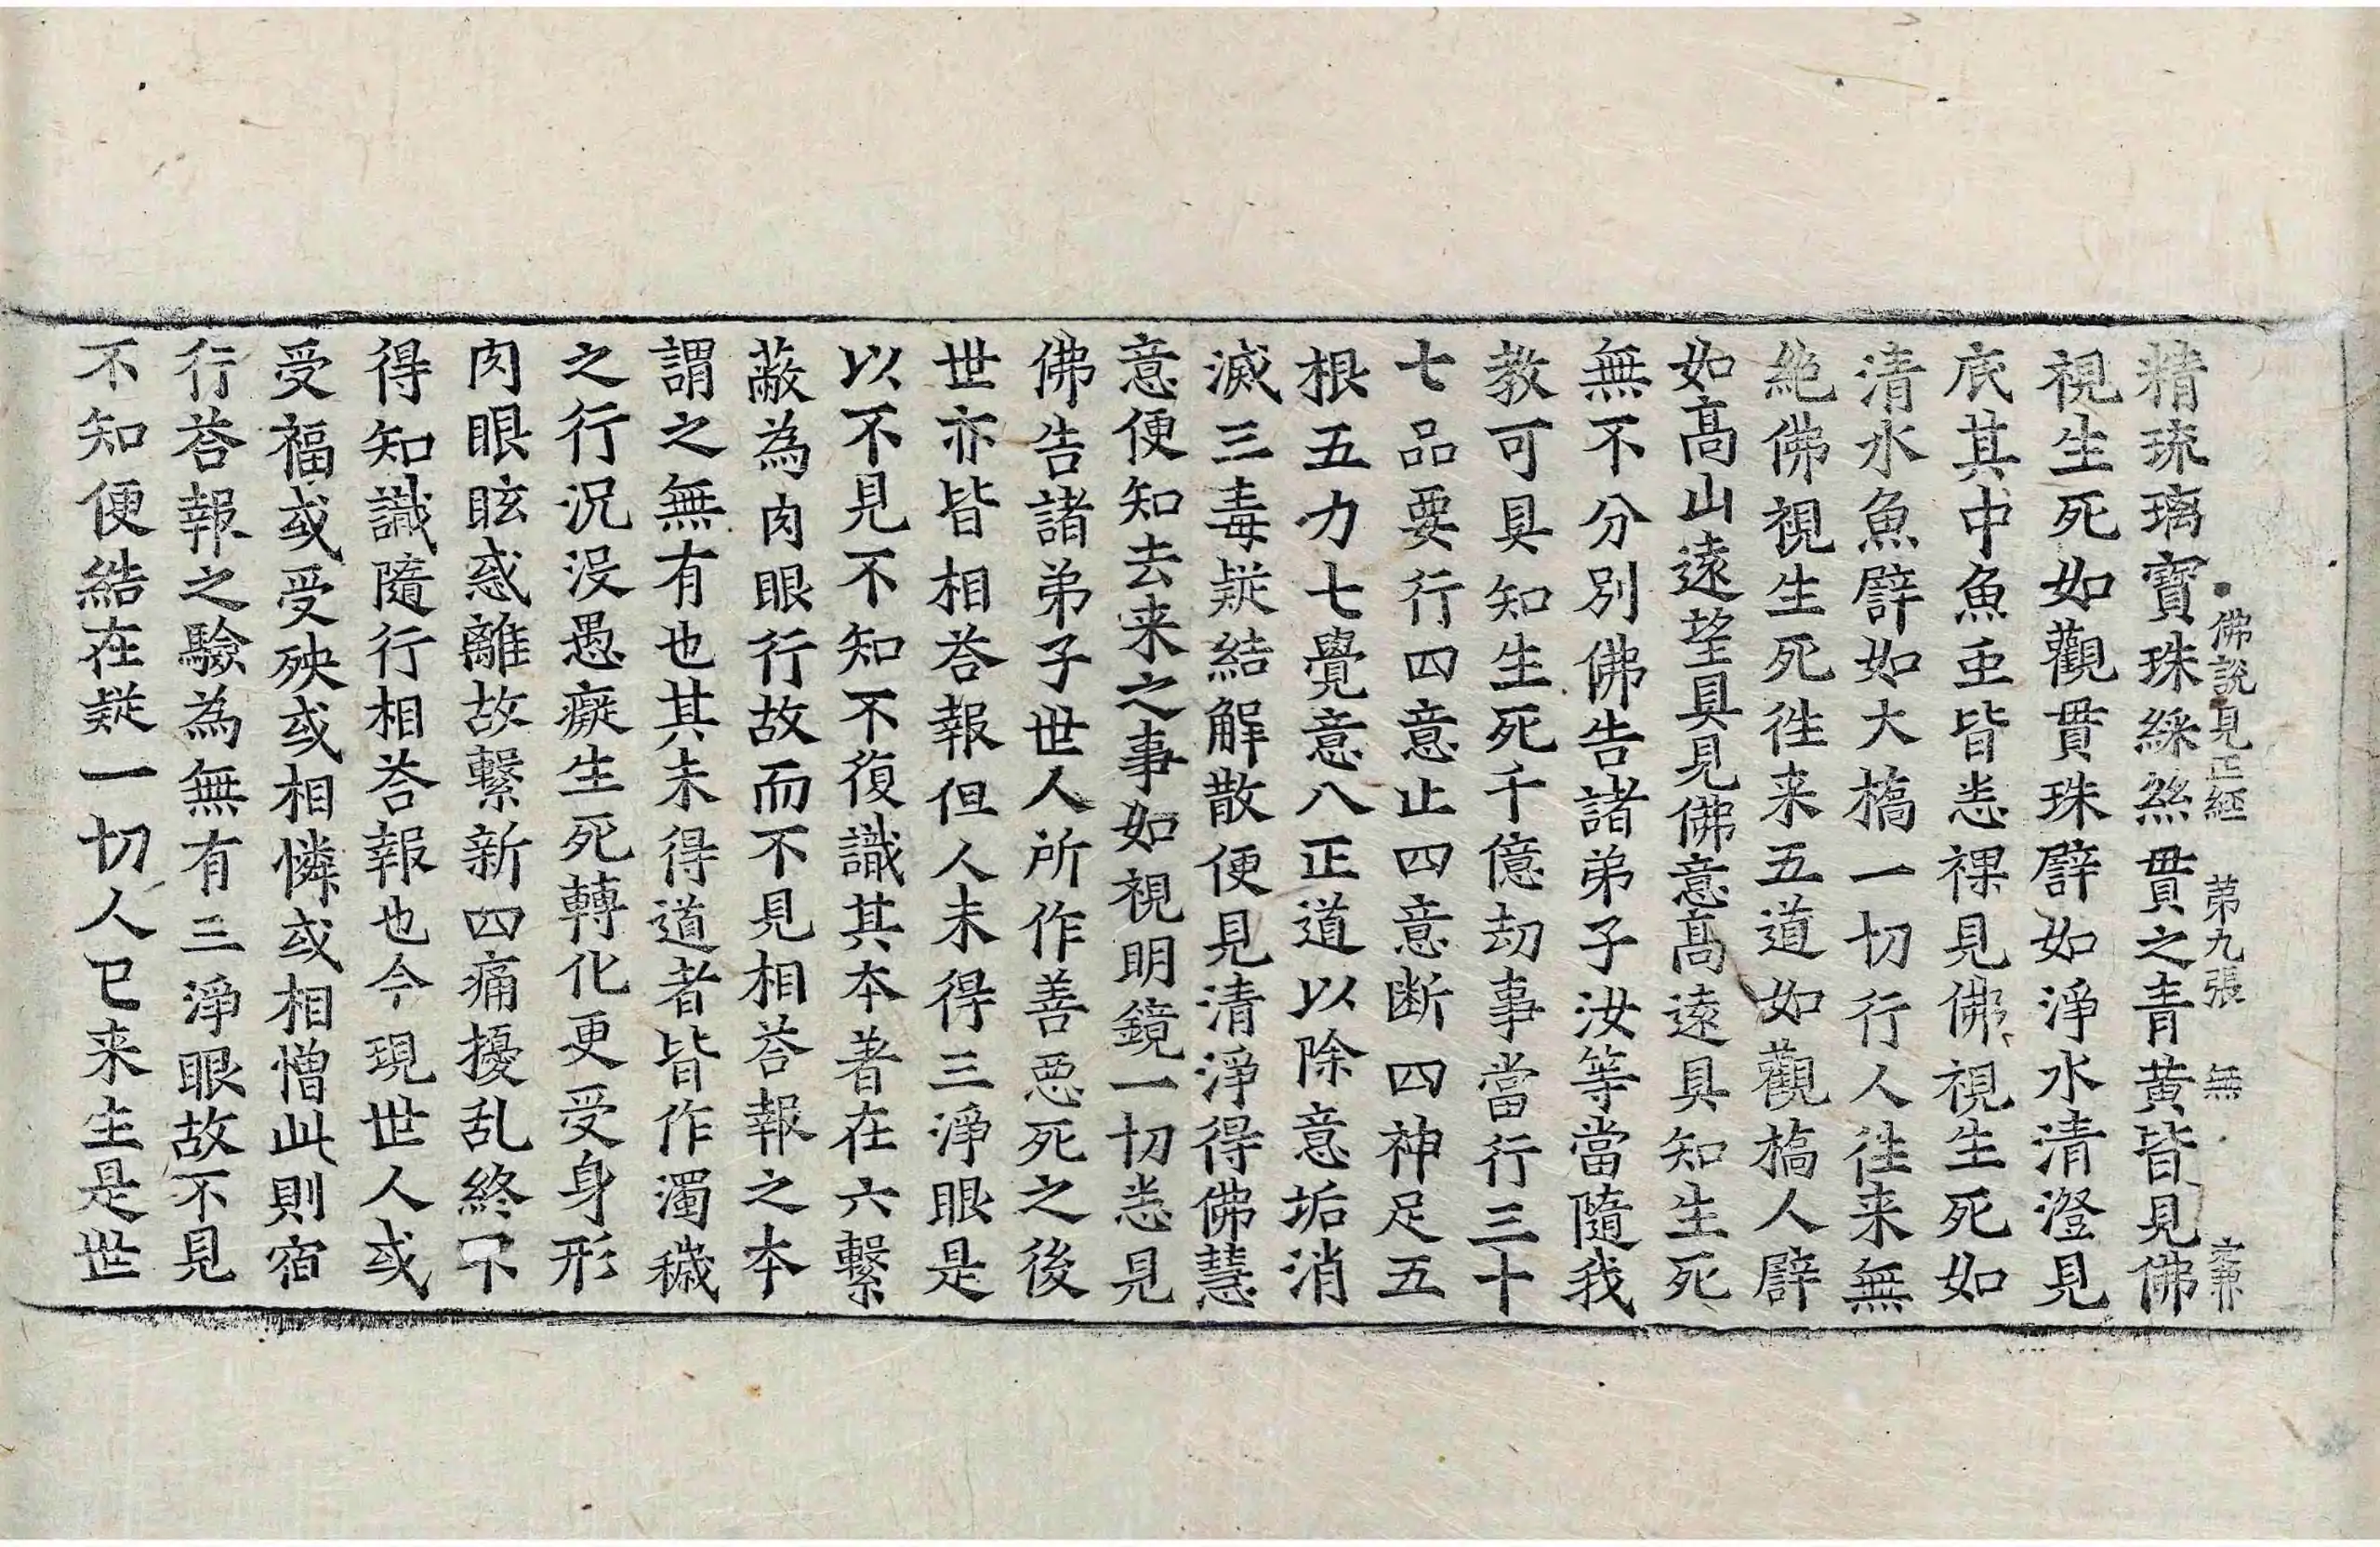 佛説見正經 第九張 無
精琉璃寶珠綵絲貫之青黄皆見佛
視生死如觀貫珠譬如淨水清澄見
底其中魚王皆悉裸見佛視生死如
清水魚譬如大橋一切行人往来無
絶佛視生死往来五道如觀橋人譬
如髙山遠望具見佛意髙遠具知生死
無不分別佛告諸弟子汝等當隨我
教可具知生死千億劫事當行三十
七品要行四意止四意断四神足五
根五力七覺意八正道以除意垢消
滅三毒疑結解散便見清淨得佛慧
意便知去来之事如視明鏡一切悉見
佛告諸弟子世人所作善惡死之後
世亦皆相荅報但人未得三淨眼是
以不見不知不復識其本著在六繫
蔽為肉眼行故而不見相荅報之本
謂之無有也其未得道者皆作濁穢
之行況没愚癡生死轉化更受身形
肉眼眩惑離故繫新四痛擾乱終不
得知識隨行相荅報也今現世人或
受福或受殃或相憐或相憎此則宿
行荅報之驗為無有三淨眼故不見
不知便結在疑一切人已来生是世